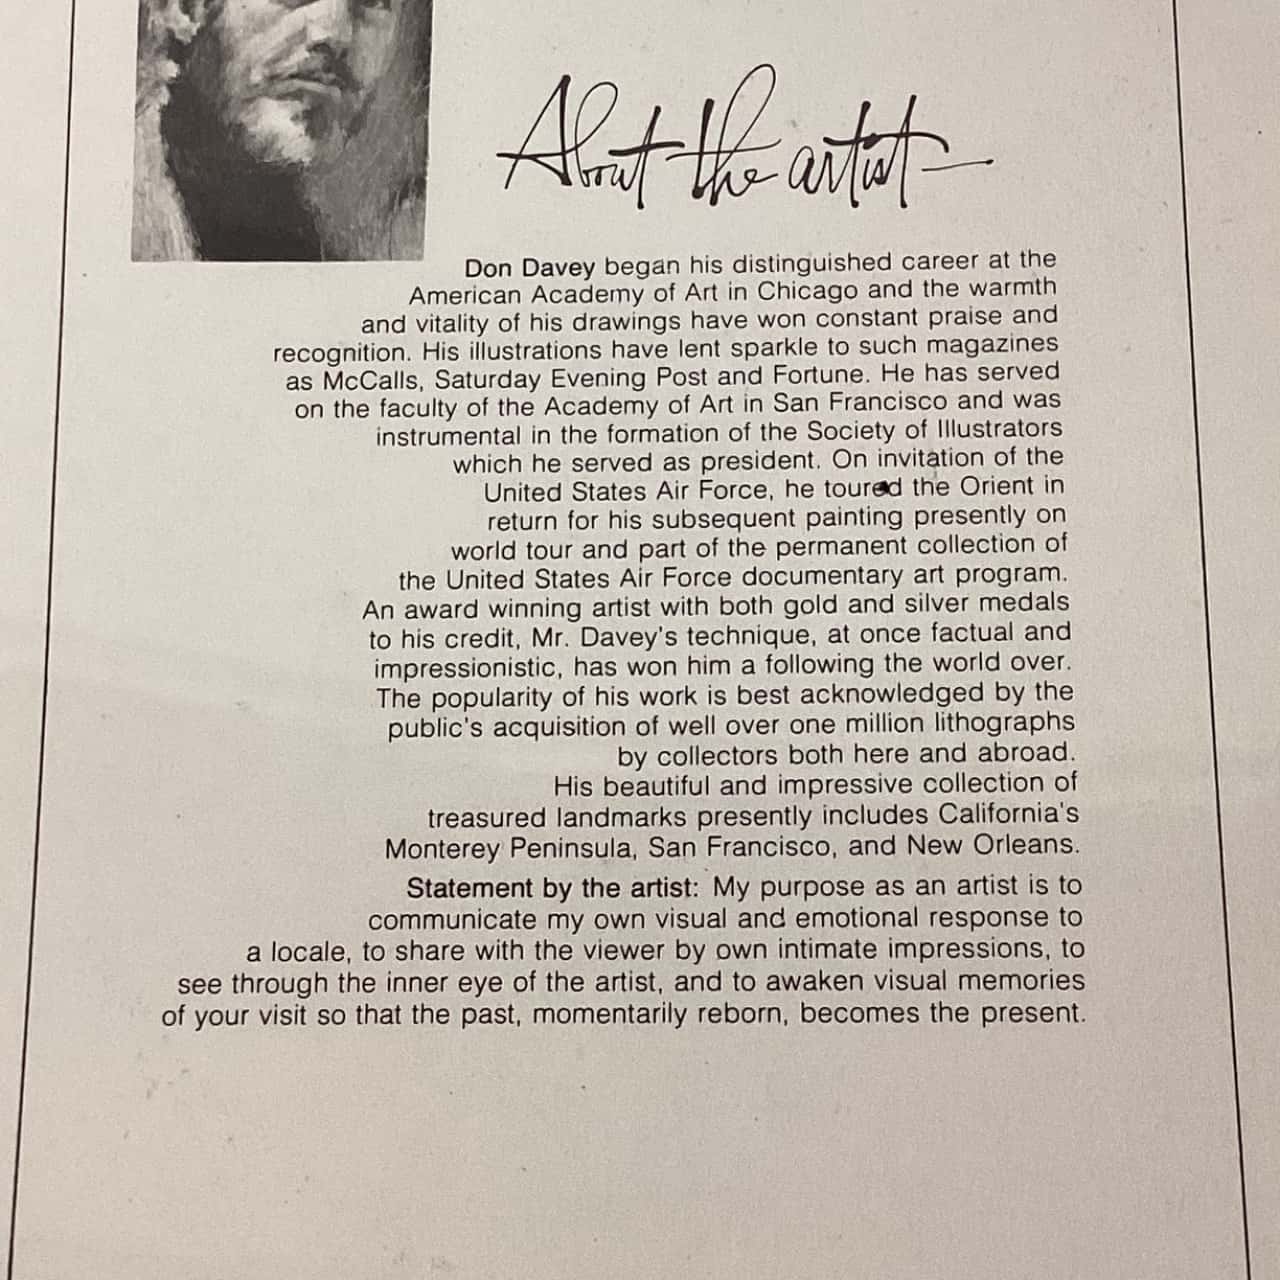 About the artist
Don Davey began his distinguished career at the
American Academy of Art in Chicago and the warmth
and vitality of his drawings have won constant praise and
recognition. His illustrations have lent sparkle to such magazines
as McCalls, Saturday Evening Post and Fortune. He has served
on the faculty of the Academy of Art in San Francisco and was
instrumental in the formation of the Society of Illustrators
which he served as president. On invitation of the
United States Air Force, he toured the Orient in
return for his subsequent painting presently on
world tour and part of the permanent collection of
the United States Air Force documentary art program.
An award winning artist with both gold and silver medals
to his credit, Mr. Davey's technique, at once factual and
impressionistic, has won him a following the world over.
The popularity of his work is best acknowledged by the
public's acquisition of well over one million lithographs
by collectors both here and abroad.
His beautiful and impressive collection of
treasured landmarks presently includes California's
Monterey Peninsula, San Francisco, and New Orleans.
Statement by the artist: My purpose as an artist is to
communicate my own visual and emotional response to
a locale, to share with the viewer by own intimate impressions, to
see through the inner eye of the artist, and to awaken visual memories
of your visit so that the past, momentarily reborn, becomes the present.